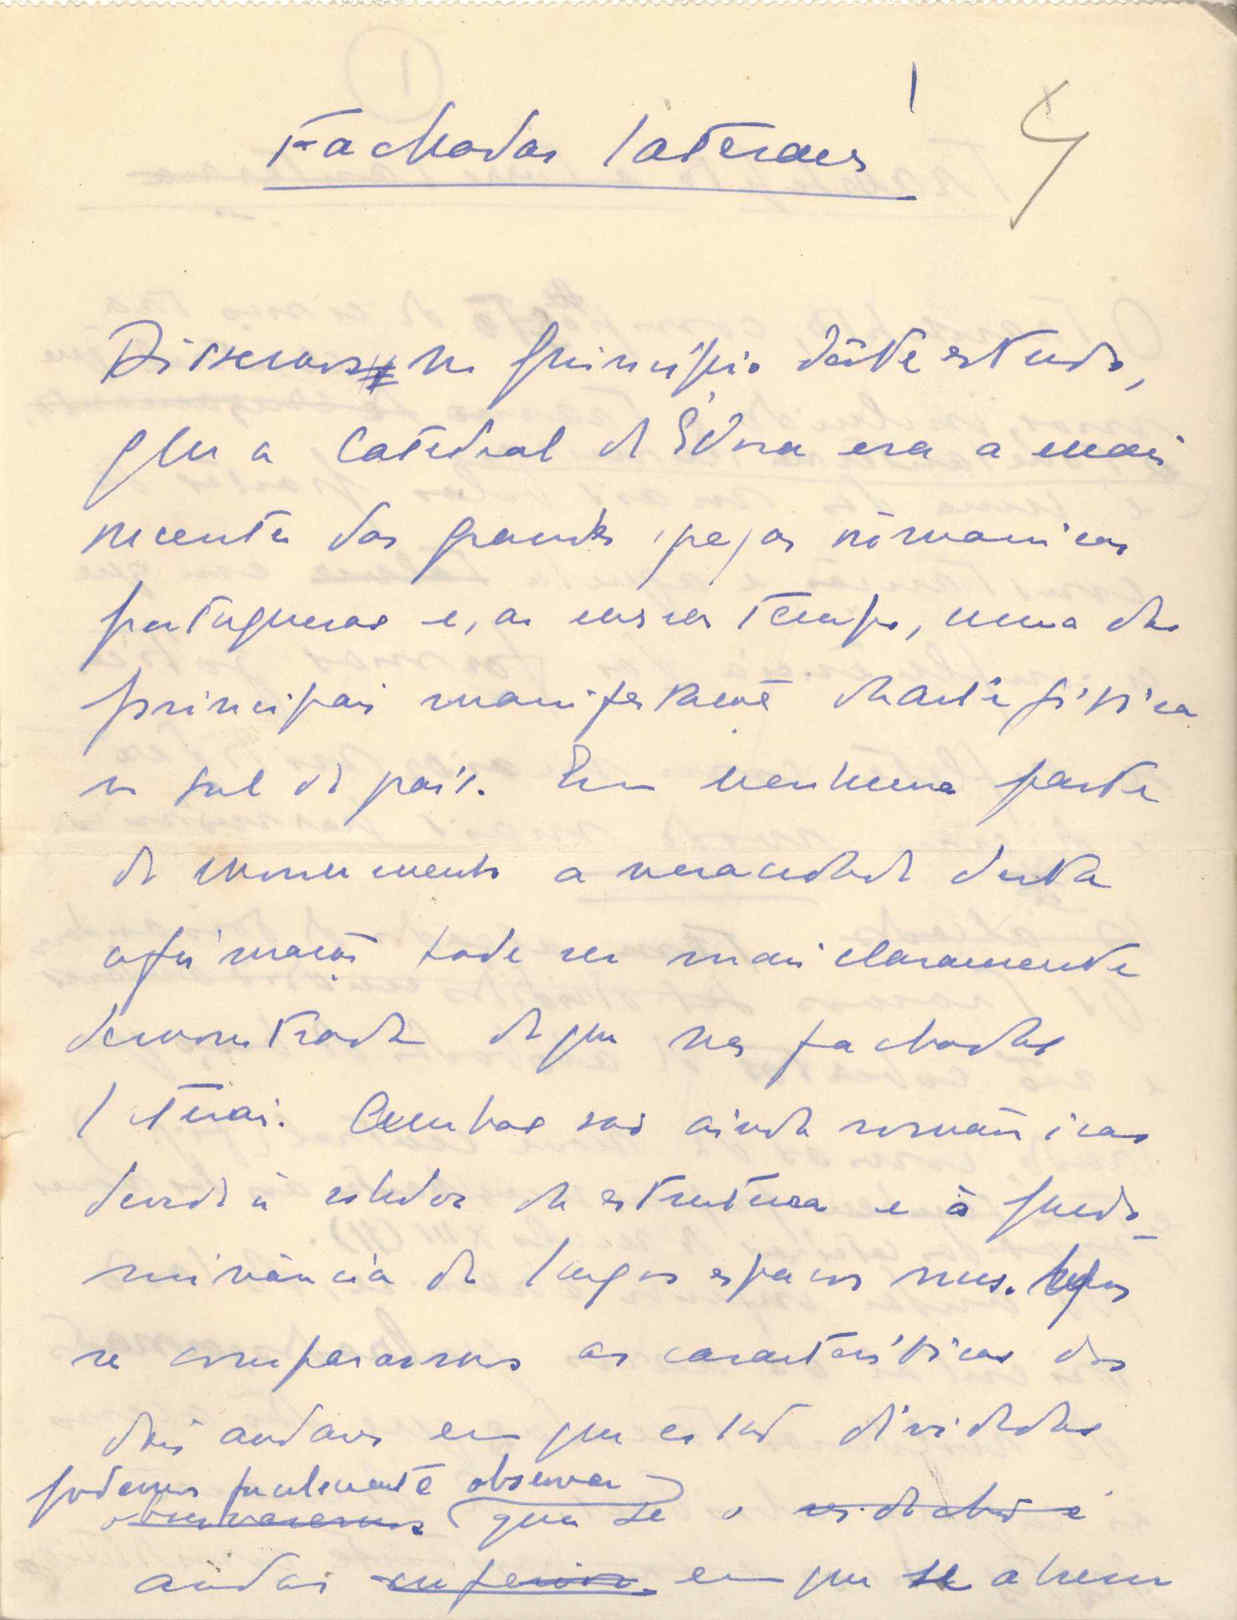 Fachadas laterais
4
Dissemos no princípio dêste estudo,
que a Catedral de Évora era a mais
recente das grandes peças românicas
portuguesas e, ao mesmo tempo, uma das
principais manifestações da arte gótica
no sul do país. Em nenhuma parte
do monumento a veracidade desta
afirmação pode ser mais claramente
demonstrada do que nas fachadas
laterais. Ambas são ainda românicas
devido à solidez da estrutura e à predo-
minância de largos espaços nus. Mas
se compararmos as características dos
dois andares em que estão divididas
podemos facilmente observar
observaremos que se o
andar superior em que se abrem